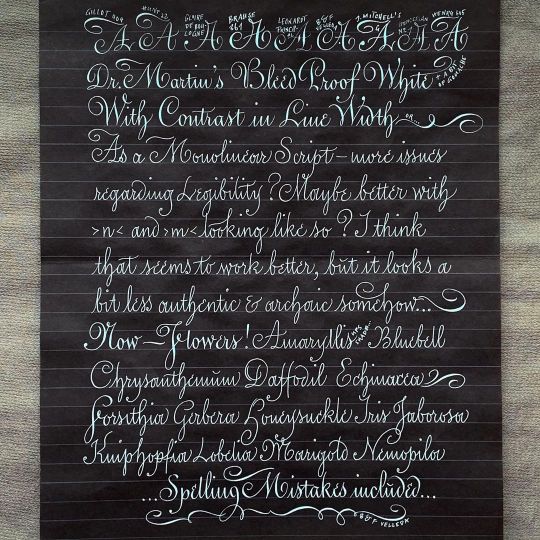 GILLOT 404 HUNT 22 CLAIRE DE BOULOGNE BRAUSE 361 LEONARDT PRINCIPAL B&F VELLEDA J. MITCHELL'S Nº1 HENRY 505
A A A A A A A A A
Dr. Martin's Bleed Proof White + A BIT OF GOUACHE
With Contrast in Line Width or...
As a Monolinear Script – more issues
regarding Legibility? Maybe better with
>n< and >m< looking like so? I think
that seems to work better, but it looks a
bit less authentic & archaic somehow...
Now – Flowers! Amaryllis Bluebell
Chrysanthemum Daffodil Echinacea
Forsithia Gerbera Honeysuckle Iris Jaborosa
Kniphopfia Lobelia Marigold Nemopila
...Spelling Mistakes included...
B&F VELLEDA